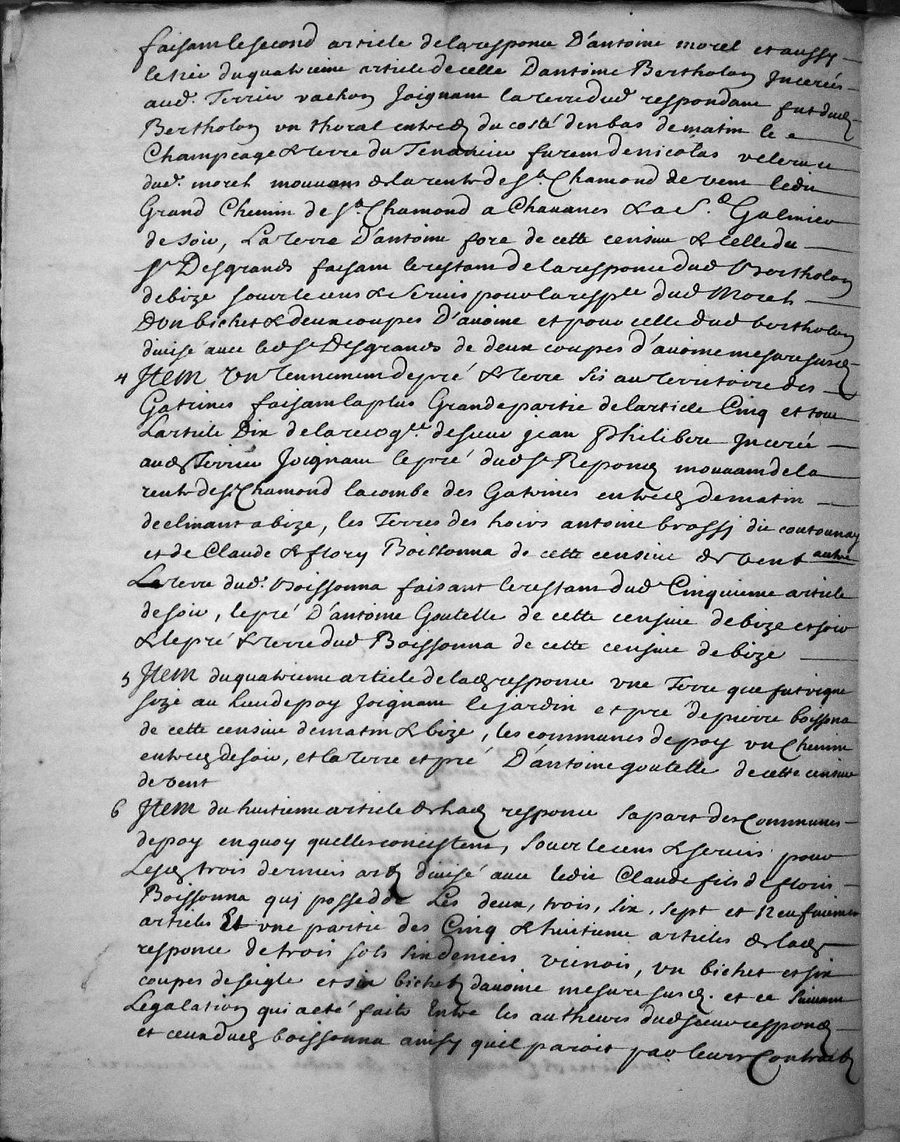 faisant le second article de la responce D'antoine morel et aussy
le tiers du quatrieme article de celle D'antoine Bertholon Inceréé
aud. Terrier vachon Joignant la terre dud respondant fut dud
Bertholon un thoral entredeux du costé d'en bas de matin le
Champeage & terre du Tenancier furent de nicolas
dud. morel mouvans de la rente de St. Chamond de vent ledit
Grand Chemin de St. Chamond a Chavanes & a St. Galmier
de soir, La terre D'antoine fore de cette censive & celle du
Sr Desgrands faisant le restant de la responce dud Bertholon
de bize sous le cens & servis pour la respce dud Morel
D'un bichet & deux coupes D'avoine et pour celle dud bertholon
divisé avec led Sr Desgrands de deux coupes d'avoine mesure susd
4 Item Un tennement de pré & terre sis au territoire des
Gatrines faisant la plus Grande partie de l'article Cinq et tout
L'article Dix de la recogce. de sieur jean Philibert Inceréé
aud Terrier Joignant le pré dud Sr Repond mouvant de la
rente de St Chamond la combe des Gatrines entredeux de matin
declinant a bize, les Terres des hoirs antoine brossy dit coutounay
et de Claude & flory Boissonna de cette censive de vent autre
La terre dud. Boissonna faisant le restant dud Cinquieme article
de soir, le pré D'antoine Goutelle de cette censive de bize et soir
& le pré & terre dud Boissonna de cette censive de bize
5 Item du quatrieme article de lad responce une Terre que fut vigne
size au lieu de poy Joignant le jardin et pré de pierre boissona
de cette censive de matin & bize, les communes de poy un Chemin
entredeux de soir, et la terre et pré D'antoine goutelle de cette censive
de vent
6 Item du huitieme article de lad responce sa part des Communes
de poy en quoy quelles concistent, sous le cens & servis pour
Lesd trois derniers art. divisé avec ledit Claude fils de floris
Boissonna qui possedde Les deux, trois, six, sept et Neufviemes
articles Et une partie des Cinq & huitieme articles de lad
responce de trois sols six deniers vienois, un bichet et six
coupes de seigle et six bichets d'avoine mesure susd. et ce suivant
L'egalation qui a eté faite Entre les autheurs dud sieur respond
et ceux dud boissonna ainsy quil paroit par leurs Contrats